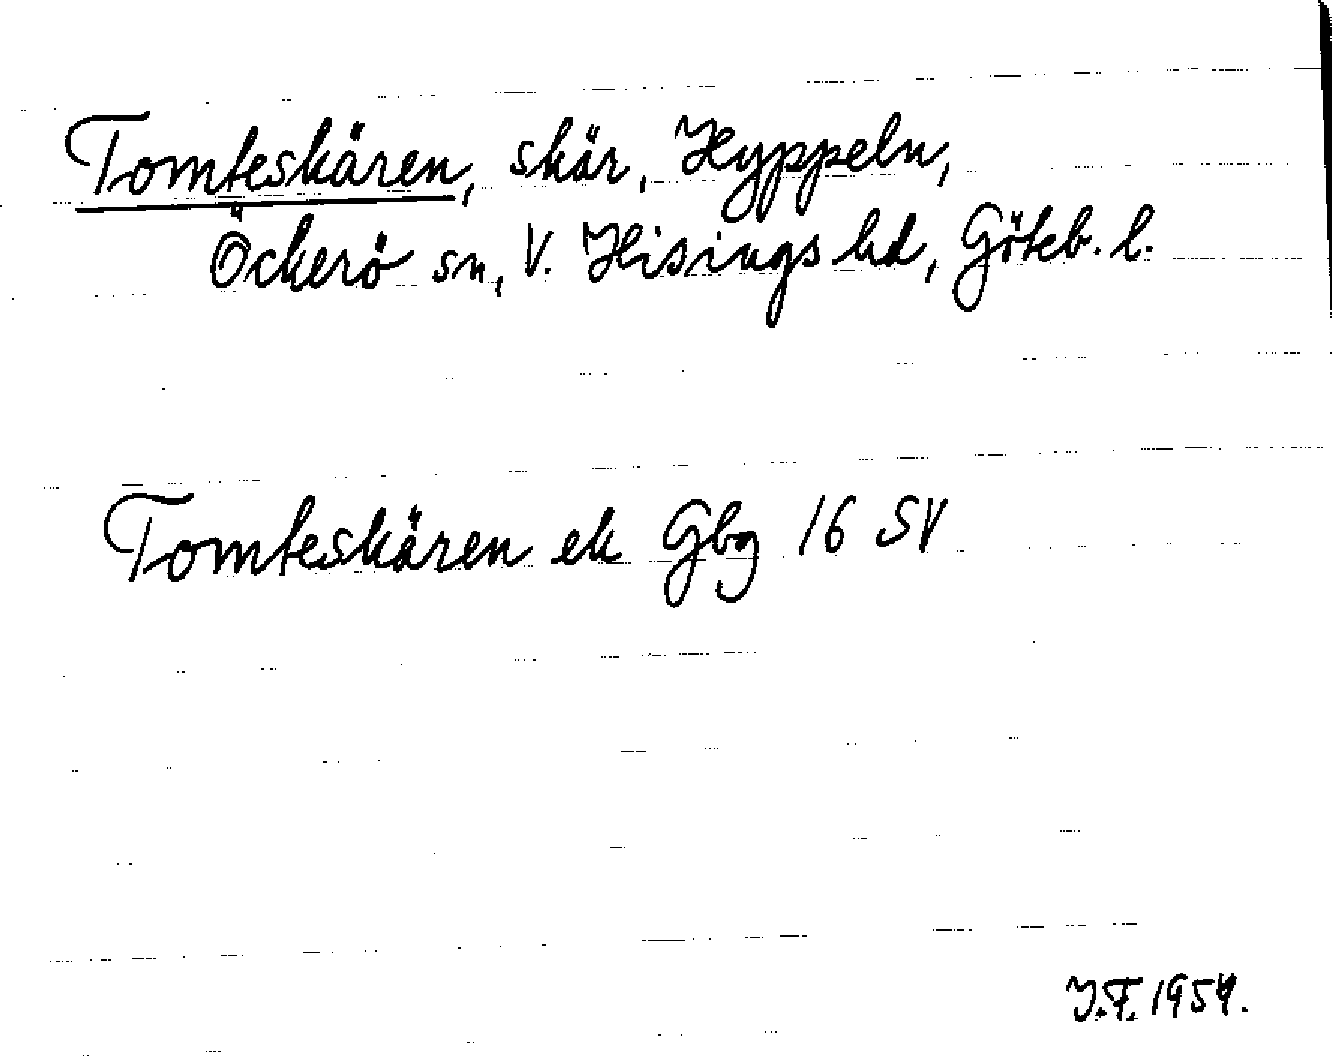 Tomteskären, skär, Hyppeln,
Öckerö sn, V. Hisings hd, Göteb. l.
Tomteskären ek Gbg 16 SV
I.F. 1954.